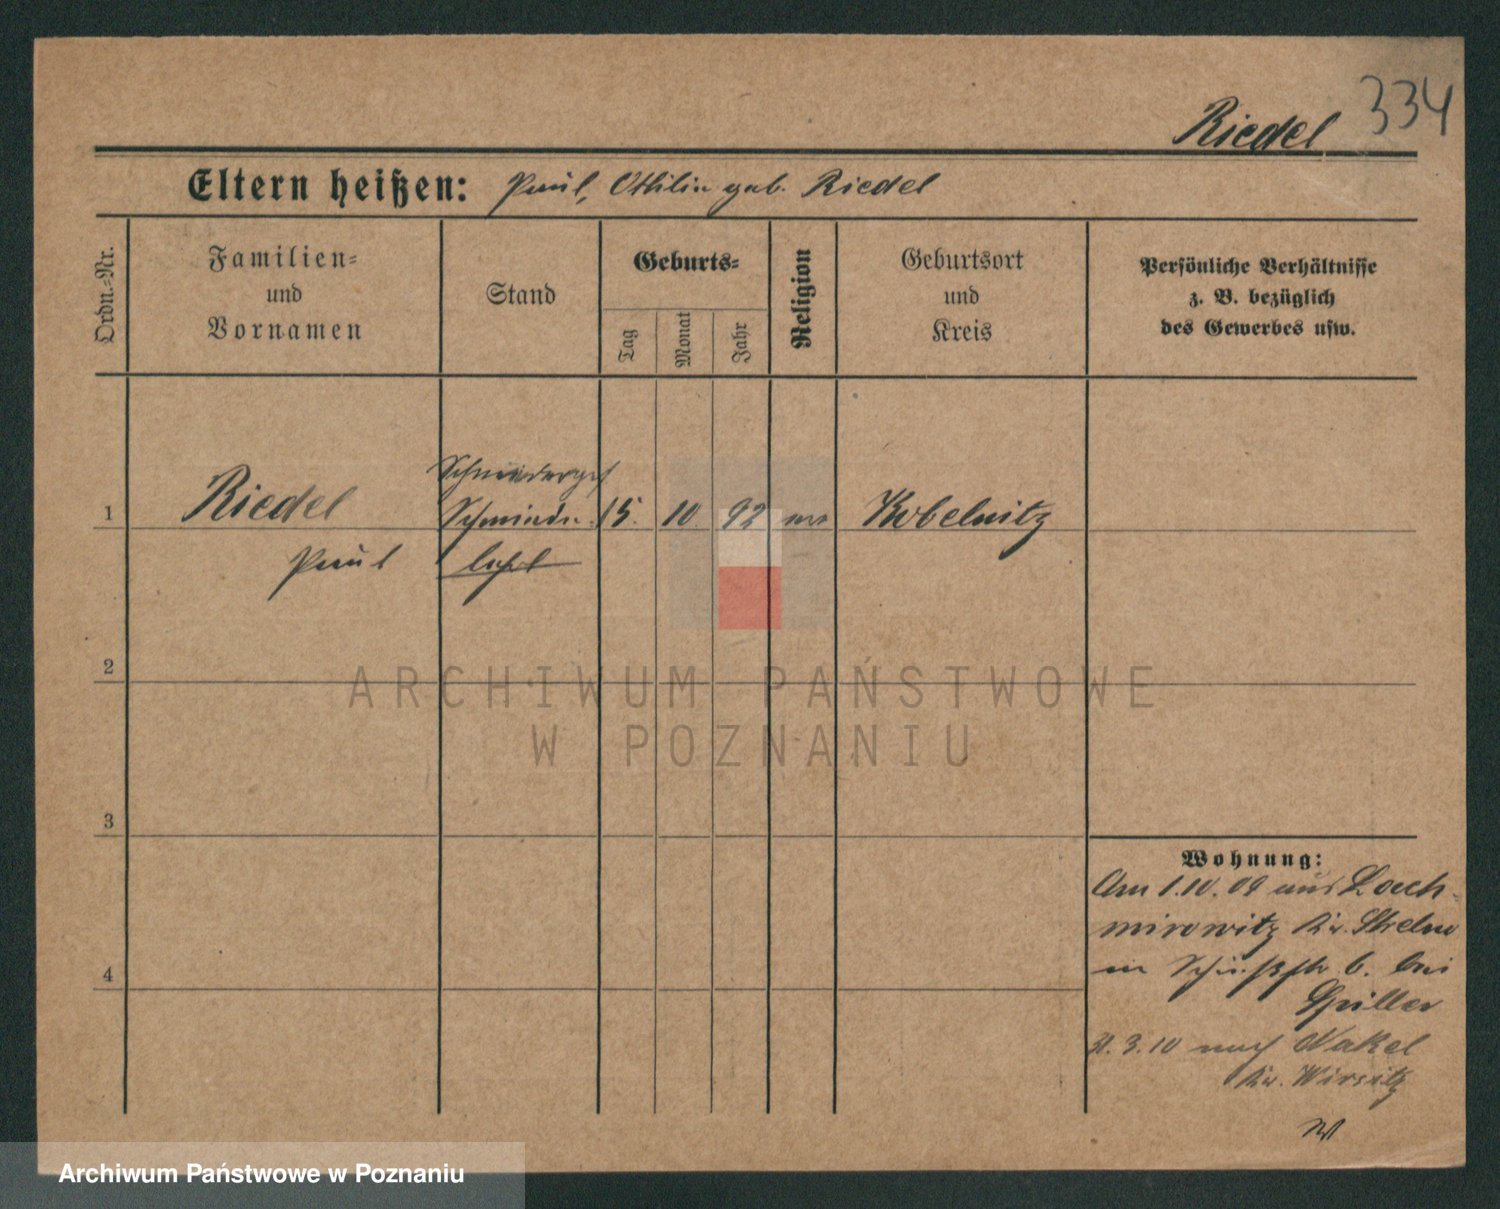 334
Riedel
Eltern heißen: Paul, Othilie geb. Riedel
Ordn.-Nr.
Familien-
und
Vornamen
Stand
Geburts-
Tag
Monat
Jahr
Religion
Geburtsort
und
Kreis
Persönliche Verhältnisse
z. B. bezüglich
des Gewerbes usw.
Schmiedeges
1 Riedel Schmiede 15. 10. 92 Kobelnitz
Paul lehrl
2
ARCHIWUM PAŃSTWOWE
W POZNANIU
3
4
Wohnung:
Am 1.10.09 aus Loch-
mirowitz Kr. Strelno
in 6. bei
Spiller
31.3.10 nach Nakel
Kr. Wirsitz
Archiwum Państwowe w Poznaniu